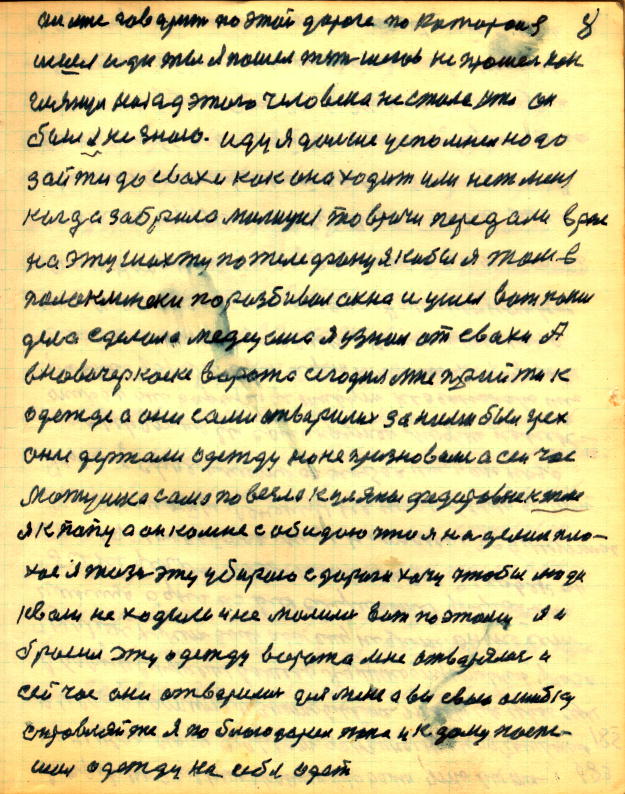 он мне говорит по этой дороге по которой я 8
шел иди жил я пошел пять шегов не прошел как
глянул назад этого человека не стала кто он
был я не знаю. иду я дальше успомнел надо
зайти до свахи как она ходит или нет меня
когда забрала милиция то врачи передали в
на эту шахту по телефону якобы я там в
поликлинеки поразбивал окна и ушел вот такии
дела сделала медецына я узнал от свахи А
в новочеркаске варота сегодня мне прийти к
одежде а они сами отварились за ними был грех
они держали одежду но не признавали а сей час
матушка сама повезла к
я к папу а он ко мне с обидою что я наделал пло-
хое я тозь эту убираю с дороги хочу чтобы люди
к вам не ходили и не молили вот поэтому я и
бросил эту одежду варота мне отварялись и
сей час они отварились для мене а вы свою ошибку
справляйте я поблагодарил попа и к дому поспе-
шил одежду на себя одет